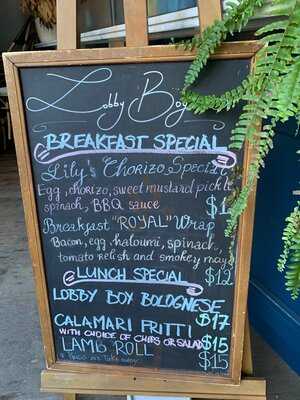 Lobby Boy
BREAKFAST SPECIAL
Lily's Chorizo Special
Egg, chorizo, sweet mustard pickle
spinach, BBQ sauce $1
Breakfast "ROYAL" Wrap
Bacon, egg, haloumi, spinach,
tomato relish and smokey mayo
$12
LUNCH SPECIAL
LOBBY BOX BOLOGNESE
$17
CALAMARI FRITTI
WITH CHOICE OF CHIPS OR SALAD $15
LAMB ROLL $15